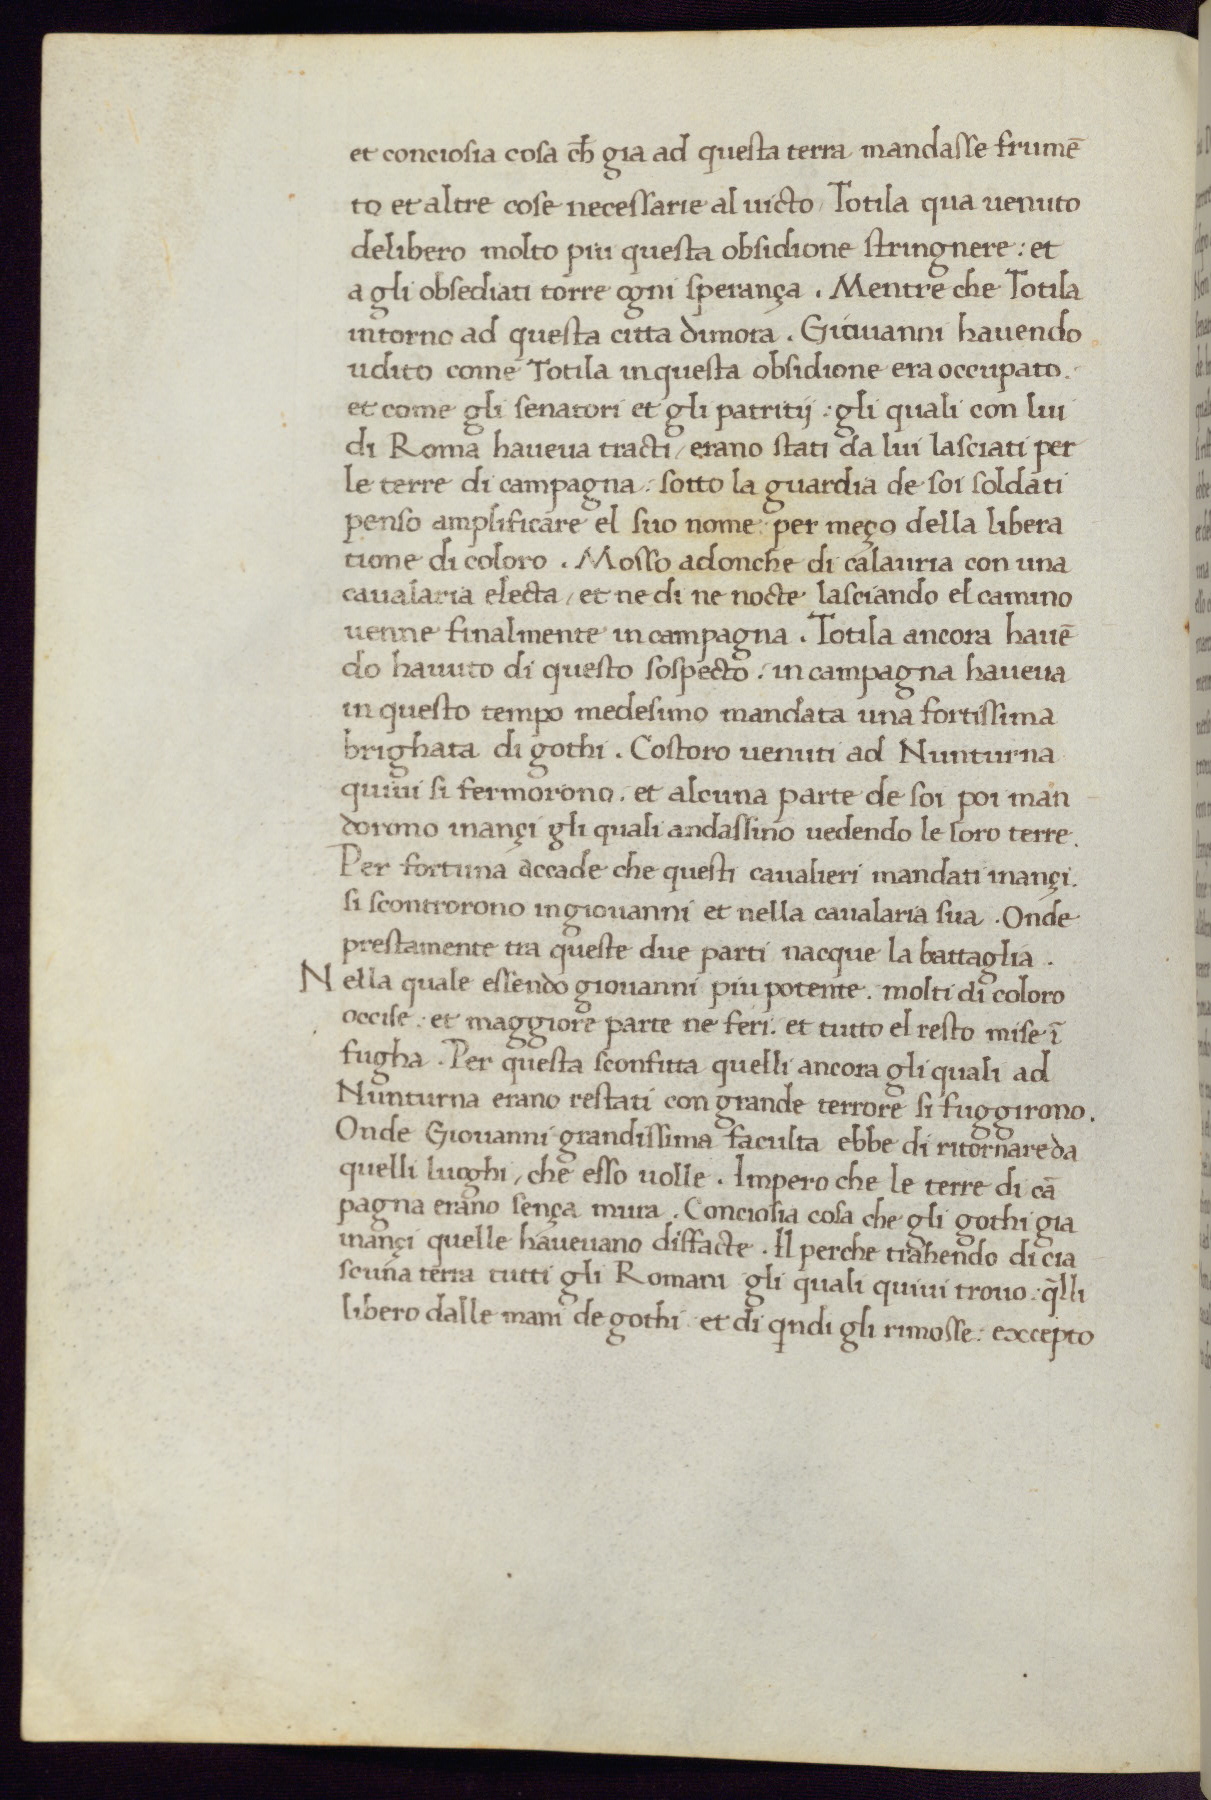 et conciosia cosa ch̄ gia ad questa terra mandasse frumē
to et altre cose necessarie al uicto / Totila qua uenuto
delibero molto piu questa obsidione stringnere : et
a gli obsediati torre ogni sperança . Mentre che Totila
intorno ad questa citta dimora . Giouanni hauendo
udito come Totila in questa obsidione era occupato .
et come gli senatori et gli patritij : gli quali con lui
di Roma haueua tracti / erano stati da lui lasciati per
le terre di campagna : sotto la guardia de soi soldati
penso amplificare el suo nome : per meço della libera
tione di coloro . Mosso adonche di calauria con una
caualaria electa / et ne di ne nocte lasciando el camino
uenne finalmente in campagna . Totila ancora hauē
do hauuto di questo sospecto : in campagna haueua
in questo tempo medesimo mandata una fortissima
brighata di gothi . Costoro uenuti ad Nunturna
quiui si fermorono . et alcuna parte de soi poi man
dorono inançi gli quali andassino uedendo le loro terre .
Per fortuna accade che questi caualieri mandati inançi .
si scontrorono in giouanni et nella caualaria sua . Onde
prestamente tra queste due parti nacque la battaglia .
Nella quale essendo giouanni piu potente . molti di coloro
occise : et maggiore parte ne feri . et tutto el resto mise ī
fugha . Per questa sconfitta quelli ancora gli quali ad
Nunturna erano restati con grande terrore si fuggirono .
Onde Giouanni grandissima faculta ebbe di ritornare da
quelli luoghi / che esso uolle . Impero che le terre di cā
pagna erano sença mura . Conciosia cosa che gli gothi gia
inançi quelle haueuano disfacte . Il perche trahendo di cia
scuna terra tutti gli Romani gli quali quiui trouo : q̄lli
libero dalle mani de gothi . et di qndi gli rimosse : excepto